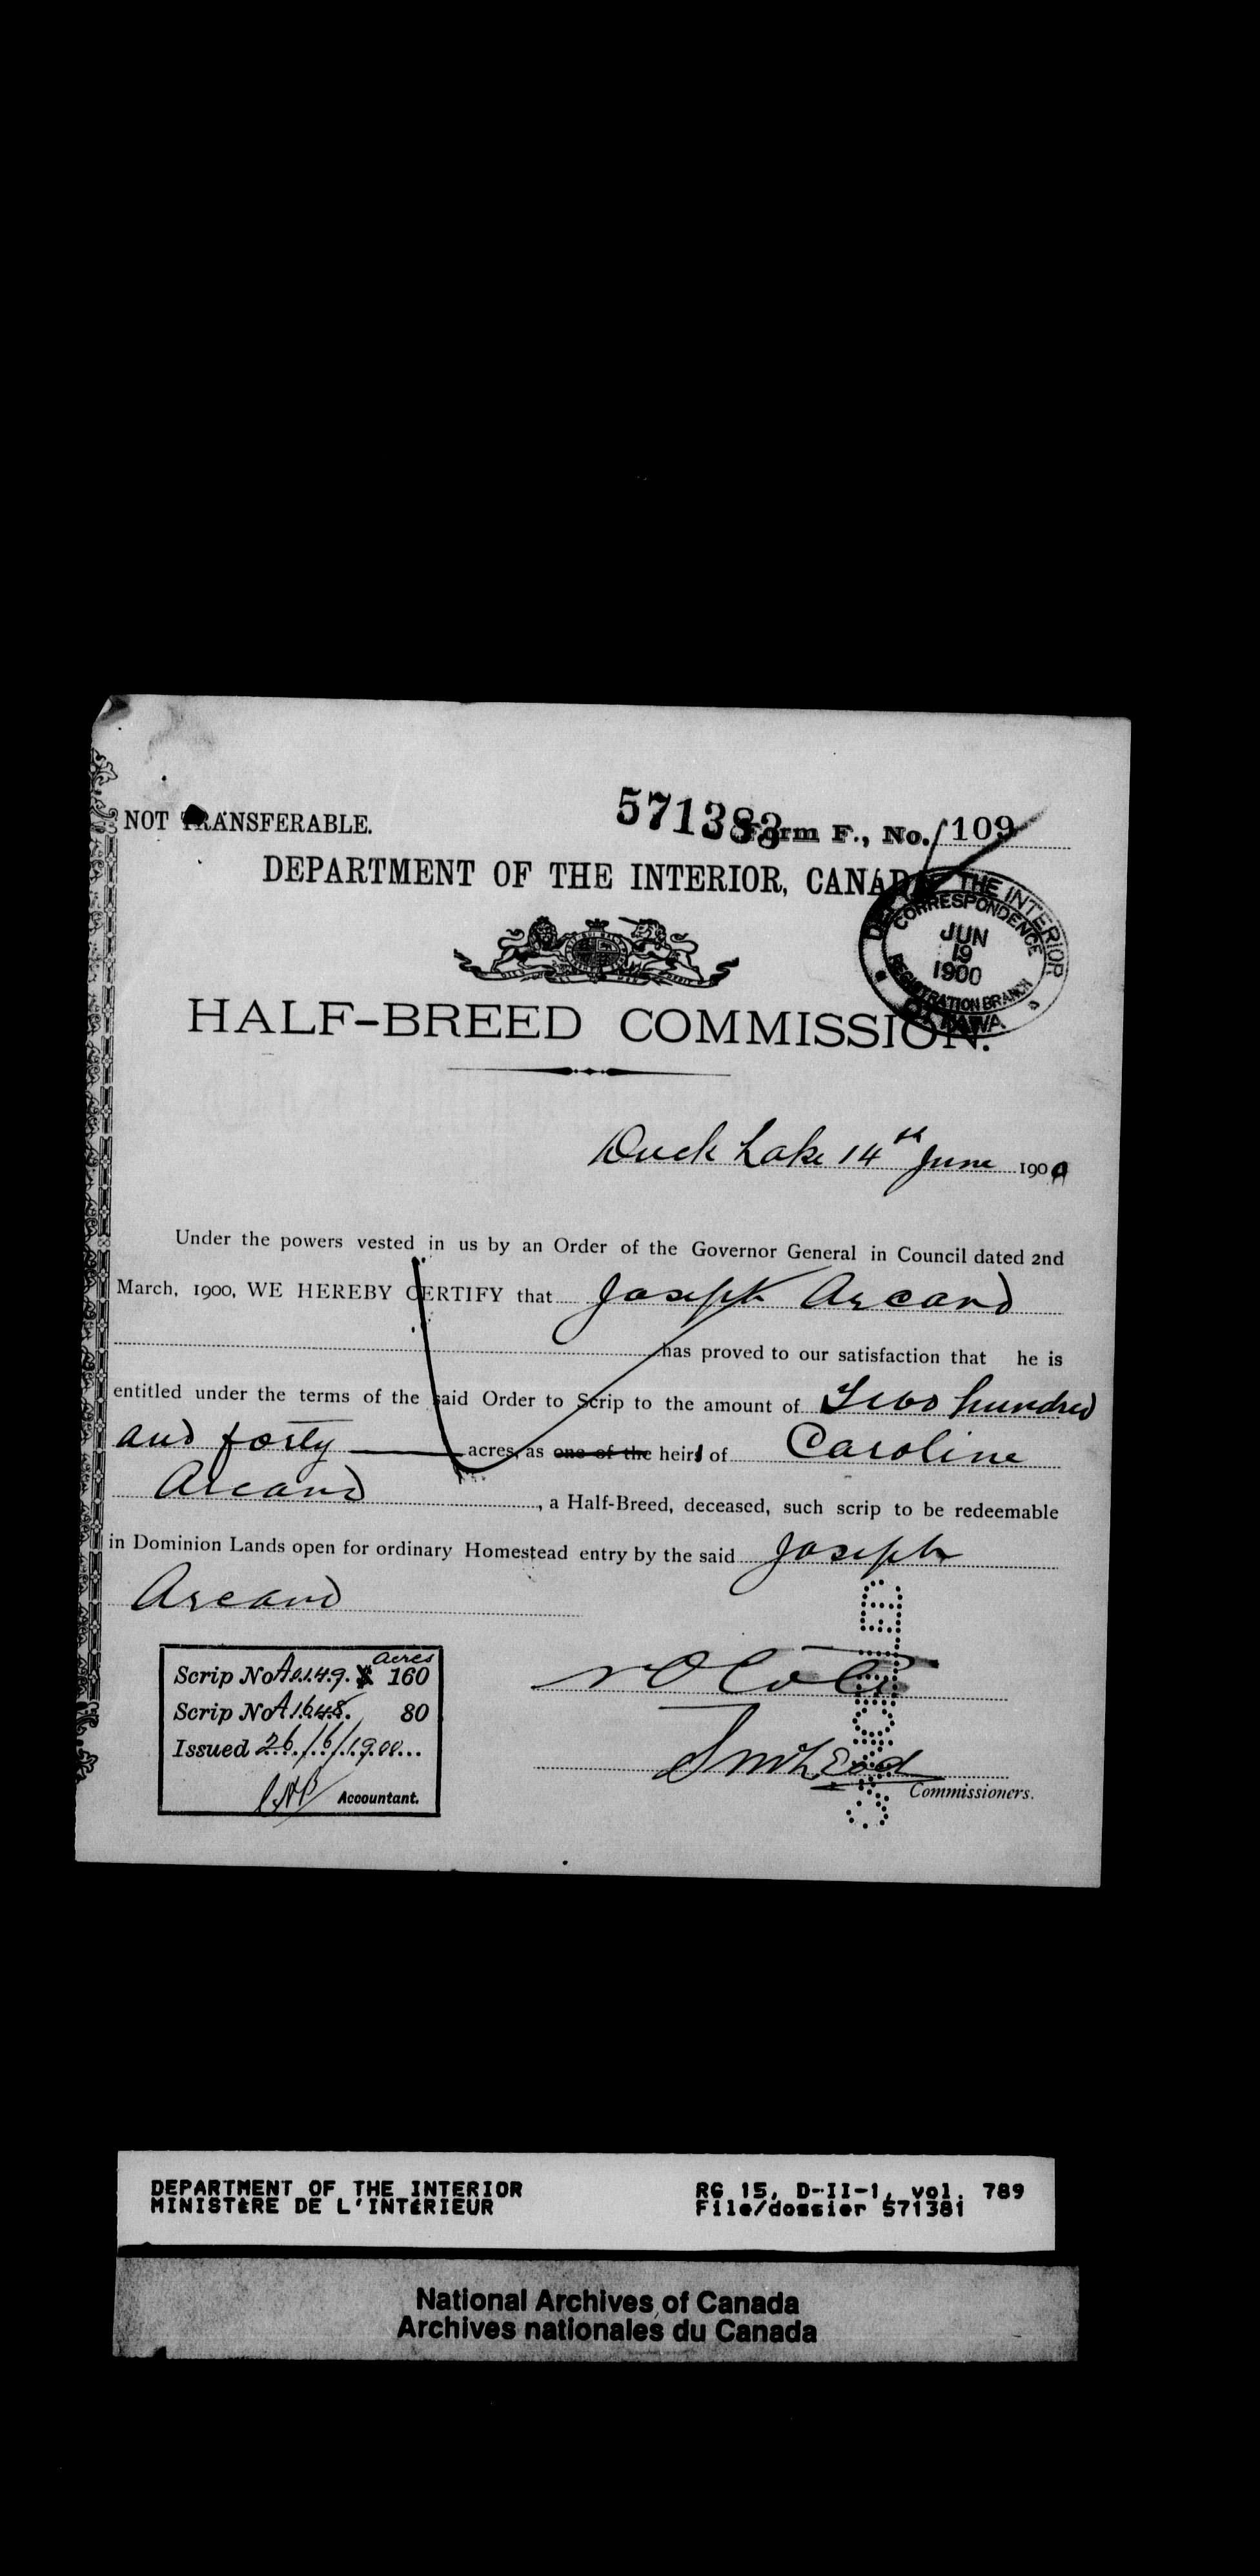 NOT TRANSFERABLE.
571383
Form F., No. 109
DEPARTMENT OF THE INTERIOR, CANADA
DEPT. OF THE INTERIOR
CORRESPONDENCE
JUN
19
1900
REGISTRATION BRANCH
OTTAWA
HALF-BREED COMMISSION.
Duck Lake 14th June 1900
Under the powers vested in us by an Order of the Governor General in Council dated 2nd
March, 1900, WE HEREBY CERTIFY that Joseph Arcand
has proved to our satisfaction that he is
entitled under the terms of the said Order to Scrip to the amount of Two hundred
and forty acres, as one of the heirs of Caroline
Arcand, a Half-Breed, deceased, such scrip to be redeemable
in Dominion Lands open for ordinary Homestead entry by the said Joseph
Arcand
acres
Scrip No A 2149. $ 160
Scrip No A 1648. 80
Issued 26/6/1900
Accountant.
Commissioners.
CANCELLED
DEPARTMENT OF THE INTERIOR
MINISTÈRE DE L'INTÉRIEUR
RG 15, D-II-1, vol. 789
File/dossier 571381
National Archives of Canada
Archives nationales du Canada